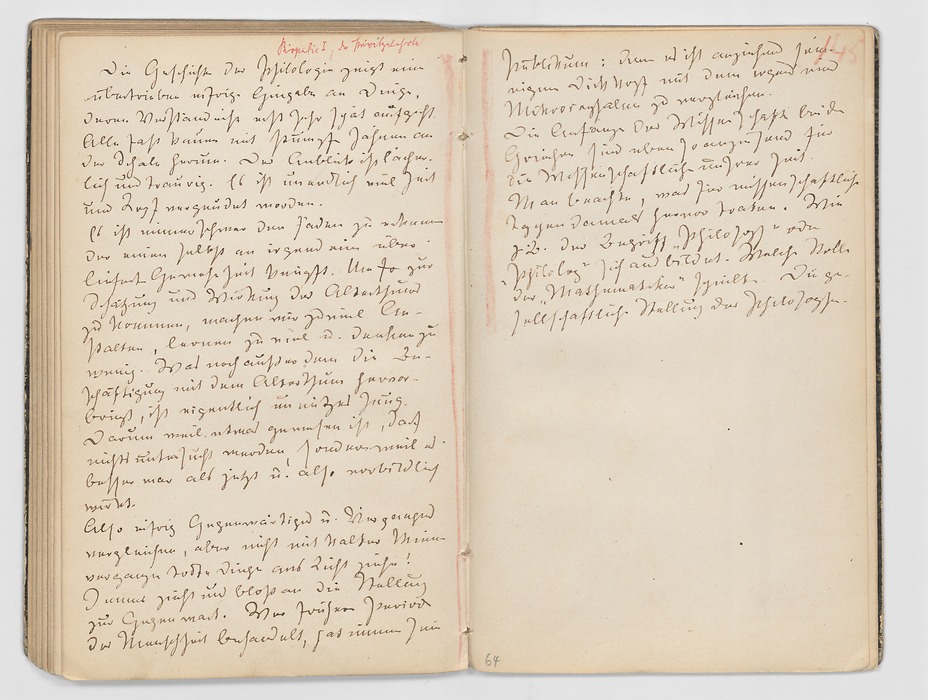 Die Geschichte der Philologie zeigt eine
übertrieben eifrige Hingabe an Dinge,
deren Verständniß erst sehr spät aufgeht.
Alle fast kauen mit stumpfen Zähnen an
der Schale herum. Der Anblick ist lächer-
lich und traurig. Es ist unendlich viel Zeit
und Kraft vergeudet worden.
Es ist immer schwer den Faden zu erkennen
der einen selbst an irgend eine über-
lieferte Gewohnheit knüpft. Um so zur
Schätzung und Wirkung des Alterthums
zu kommen, machen wir zu viel An-
stalten, lernen zu viel u. denken zu
wenig. Was noch außerdem die Be-
schäftigung mit dem Alterthum hervor-
bringt, ist eigentlich unnützes Zeug.
Darum weil etwas gewesen ist, darf
nichts untersucht werden, sondern weil es
besser war als jetzt u. also vorbildlich
wirkt.
Also eifrig Gegenwärtiges u. Vergangenes
vergleichen, aber nicht mit kalter Miene
vergangene todte Dinge ans Licht ziehn!
Immer zieht uns bloß an die Stellung
zur Gegenwart. Wer frühere Perioden
der Menschheit behandelt, hat immer sein
Publikum: denn es ist anziehend
mit dem
zu vergleichen.
Die Anfänge der Wissenschaft bei den
Griechen sind ebenso anziehend für
die Wissenschaftlichen unserer Zeit.
Man beachte, was für wissenschaftliche
Typen damals hervor traten. Wie
z.B. der Begriff „Philosoph" oder
„Philolog" sich ausbildet. Welche Rolle
der „Mathematiker" spielte. Die ge-
sellschaftliche Stellung des Philosophen.
64